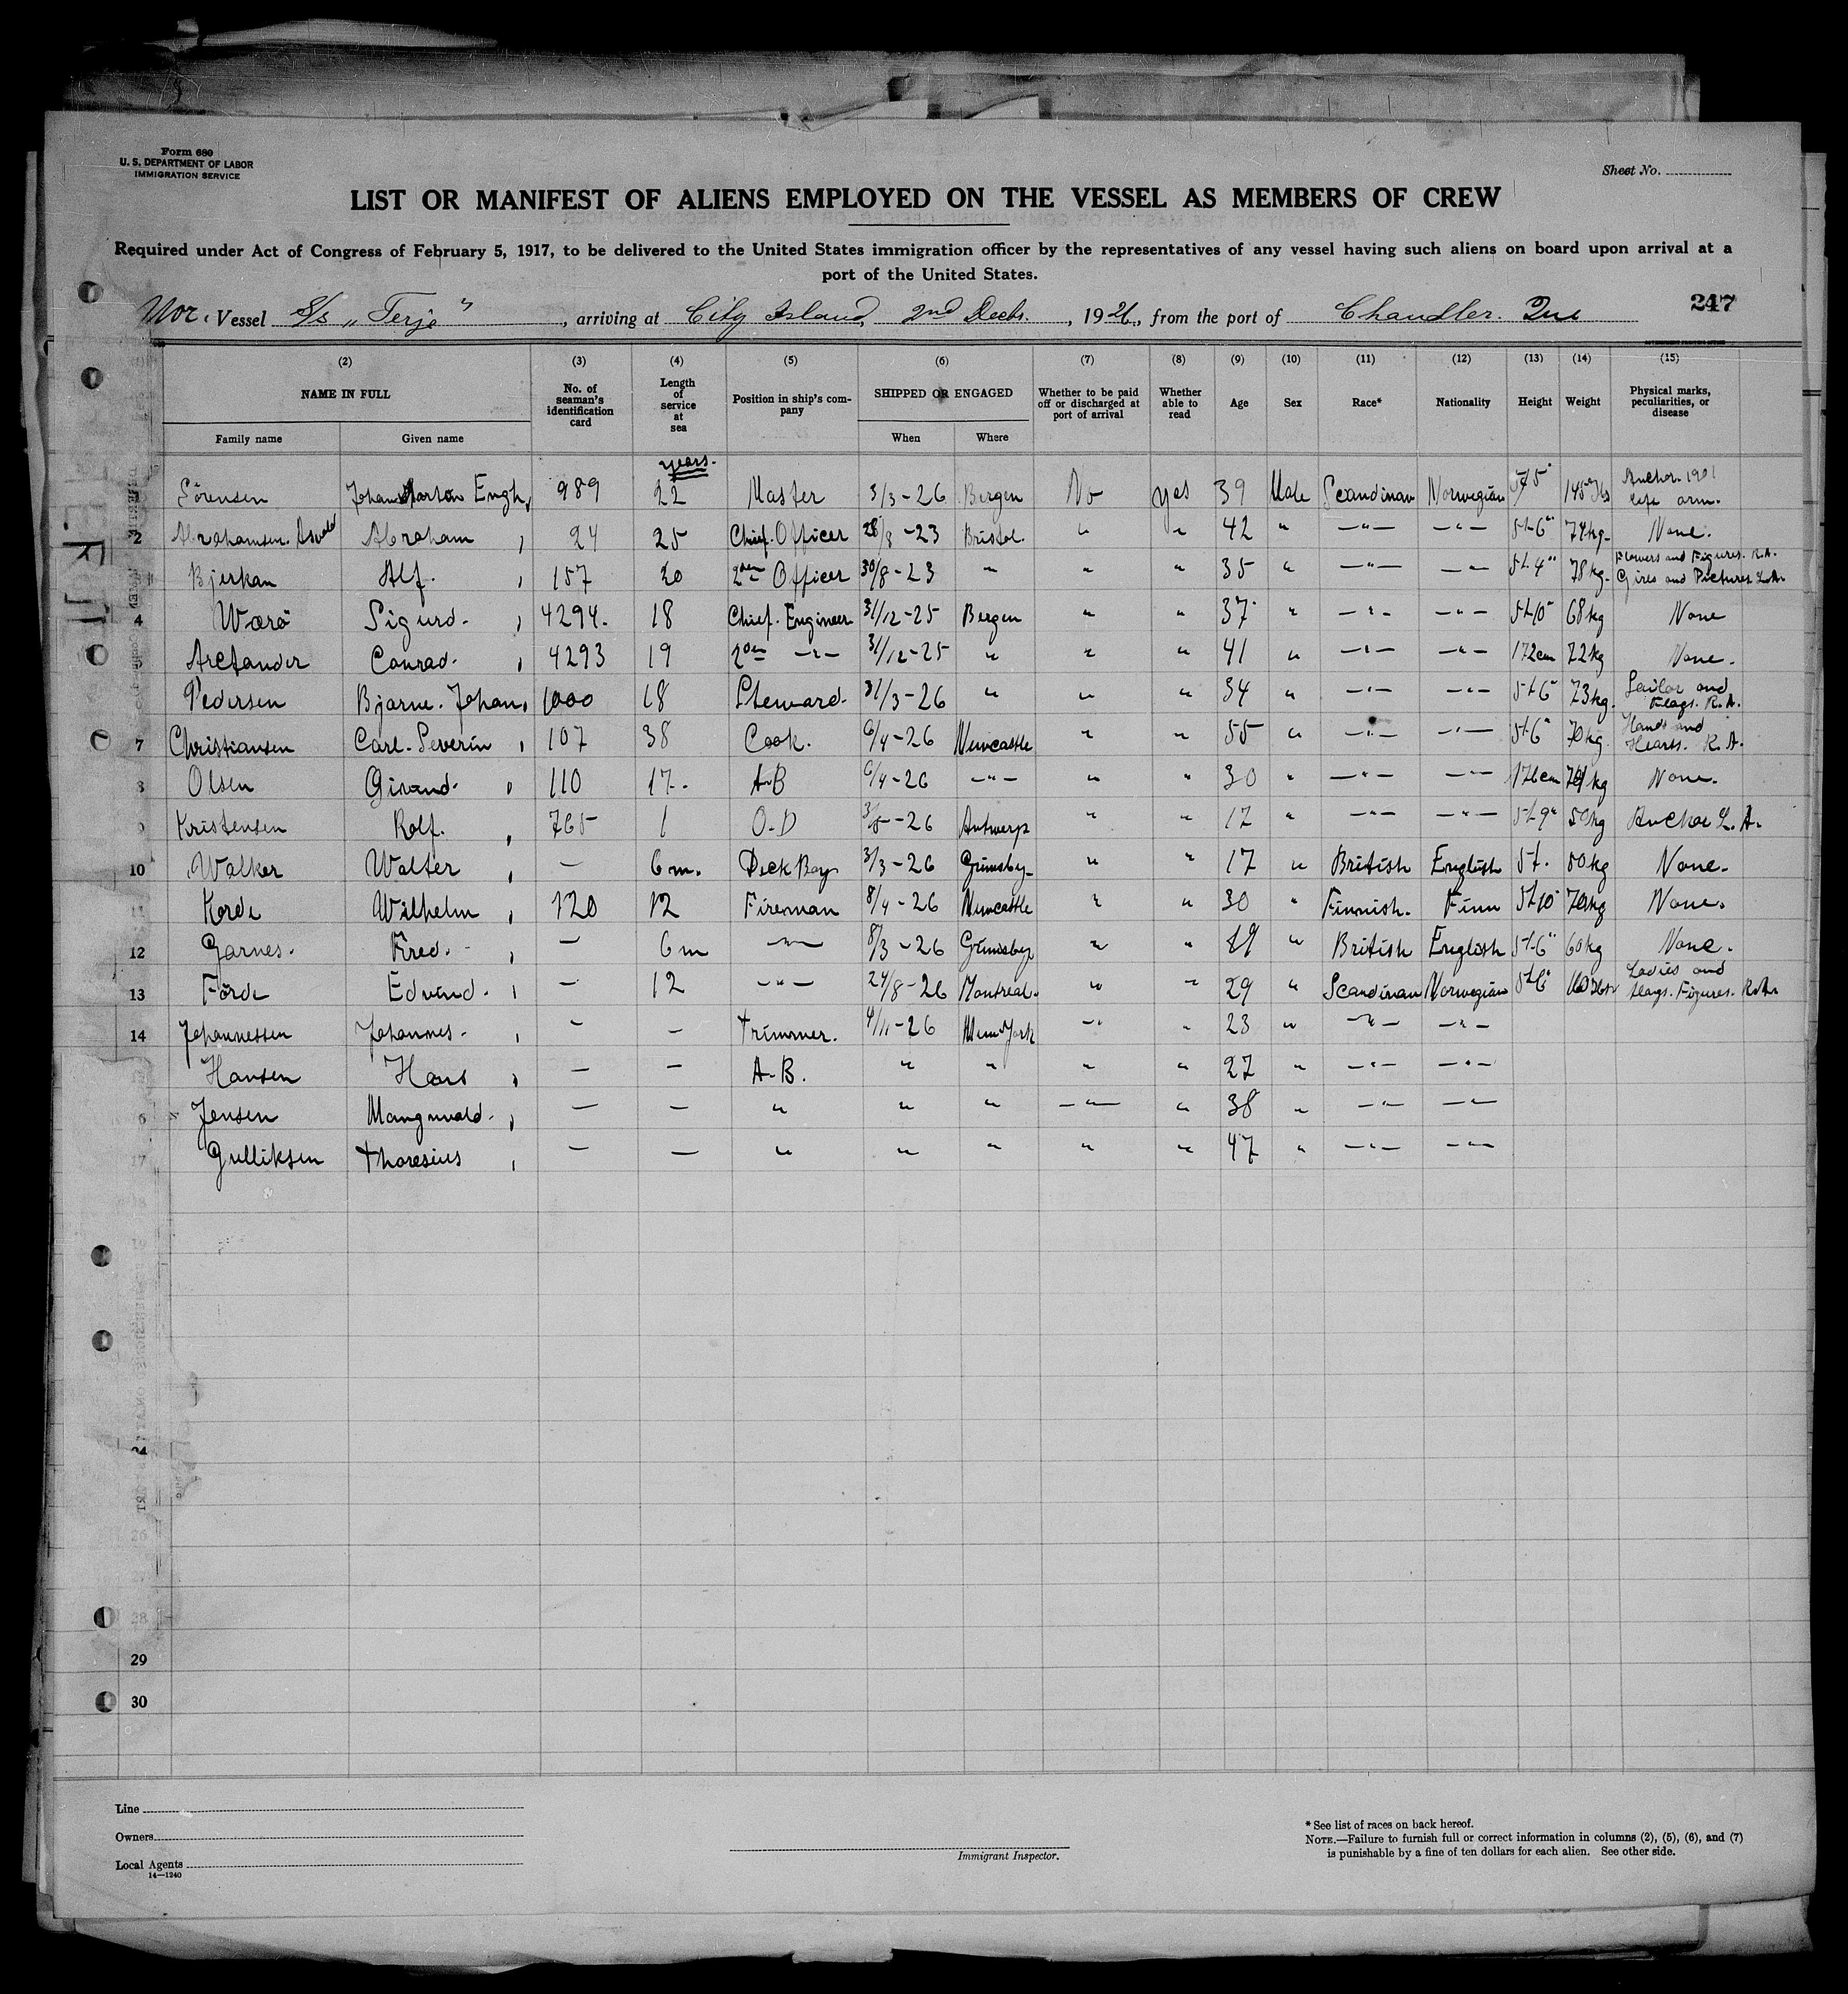 Form 680
U. S. DEPARTMENT OF LABOR
IMMIGRATION SERVICE
Sheet No.
LIST OR MANIFEST OF ALIENS EMPLOYED ON THE VESSEL AS MEMBERS OF CREW
Required under Act of Congress of February 5, 1917, to be delivered to the United States immigration officer by the representatives of any vessel having such aliens on board upon arrival at a
port of the United States.
247
Nor. Vessel S/s "Terje", arriving at City Island, 2nd Decbr., 1926, from the port of Chandler. Que
(2) (3) (4) (5) (6) (7) (8) (9) (10) (11) (12) (13) (14) (15)
NAME IN FULL No. of seaman's identification card Length of service at sea Position in ship's company SHIPPED OR ENGAGED Whether to be paid off or discharged at port of arrival Whether able to read Age Sex Race* Nationality Height Weight Physical marks, peculiarities, or disease
Family name Given name When Where
years.
Sörensen Johan Marton Engh, 989 22 Master 3/3-26 Bergen No yes 39 Male Scandinav Norwegian 5f5" 145 lbs Anchor 1901 left arm.
2 Abrahamsen. Asvald Abraham, 24 25 Chief. Officer 28/8-23 Bristol. " " 42 " -"- -"- 5f-6" 74kg- None.
Bjerkan Alf., 157 20 2den Officer 30/8-23 " " " 35 " -"- -"- 5f-4" 78kg- Flowers and Figures. R.A. Girls and Pictures L.A.
4 Wærö Sigurd-, 4294. 18 Chief. Engineer 31/12-25 Bergen " " 37 " -"- -"- 5f-10" 68kg None
5 Arctander Conrad-, 4293 19 2den -"- 31/12-25 " " " 41 " -"- -"- 172cm 72kg None.
Pedersen Bjarne. Johan, 1000 18 Steward. 31/3-26 " " " 34 " -"- -"- 5f-6" 73kg. Sailor and Flags. R.A.
7 Christiansen Carl-Severin, 107 38 Cook. 6/4-26 Newcastle " " 55 " -"- -"- 5f6" 70kg. Hands and Hearts. R.A.
8 Olsen Gi, 110 17. A-B 6/4-26 -"- " " 30 " -"- -"- 176cm kg None.
9 Kristensen Rolf., 765 1 O-D 3/5-26 Antwerp " " 17 " -"- -"- 5f-9" kg Anchor L.A.
10 Walker Walter, - 6m. Deck Boy 3/3-26 Grimsby- " " 17 " British English 5f. 50kg None.
11 Korde Wilhelm, 120 12 Fireman 8/4-26 Newcastle " " 30 " Finnish. Finn 5f10" 70kg None.
12 Garnes. Fred., - 6m -"- 8/3-26 Grimsby " " 19 " British English 5f-6" 60kg None.
13 Förde Edvind., - 12 -"- 24/8-26 Montreal. " " 29 " Scandinav Norwegian 5f6" Ladies and flags. Figures. R.A.
14 Johannessen Johannes-, - - Trimmer. 4/11-26 New York -" " 23 " -"- -"-
Hansen Hans, - - A-B. " " " " 27 " -"- -"-
6 Jensen Mangnvald-, - - " " " -"- " 38 " -"- -"-
17 Gulliksen Thoresius, - - " " " " " 47 " -"- -"-
18
19
24
26
28
29
30
Line
Owners
Local Agents
14—1240
Immigrant Inspector.
* See list of races on back hereof.
NOTE.—Failure to furnish full or correct information in columns (2), (5), (6), and (7)
is punishable by a fine of ten dollars for each alien. See other side.